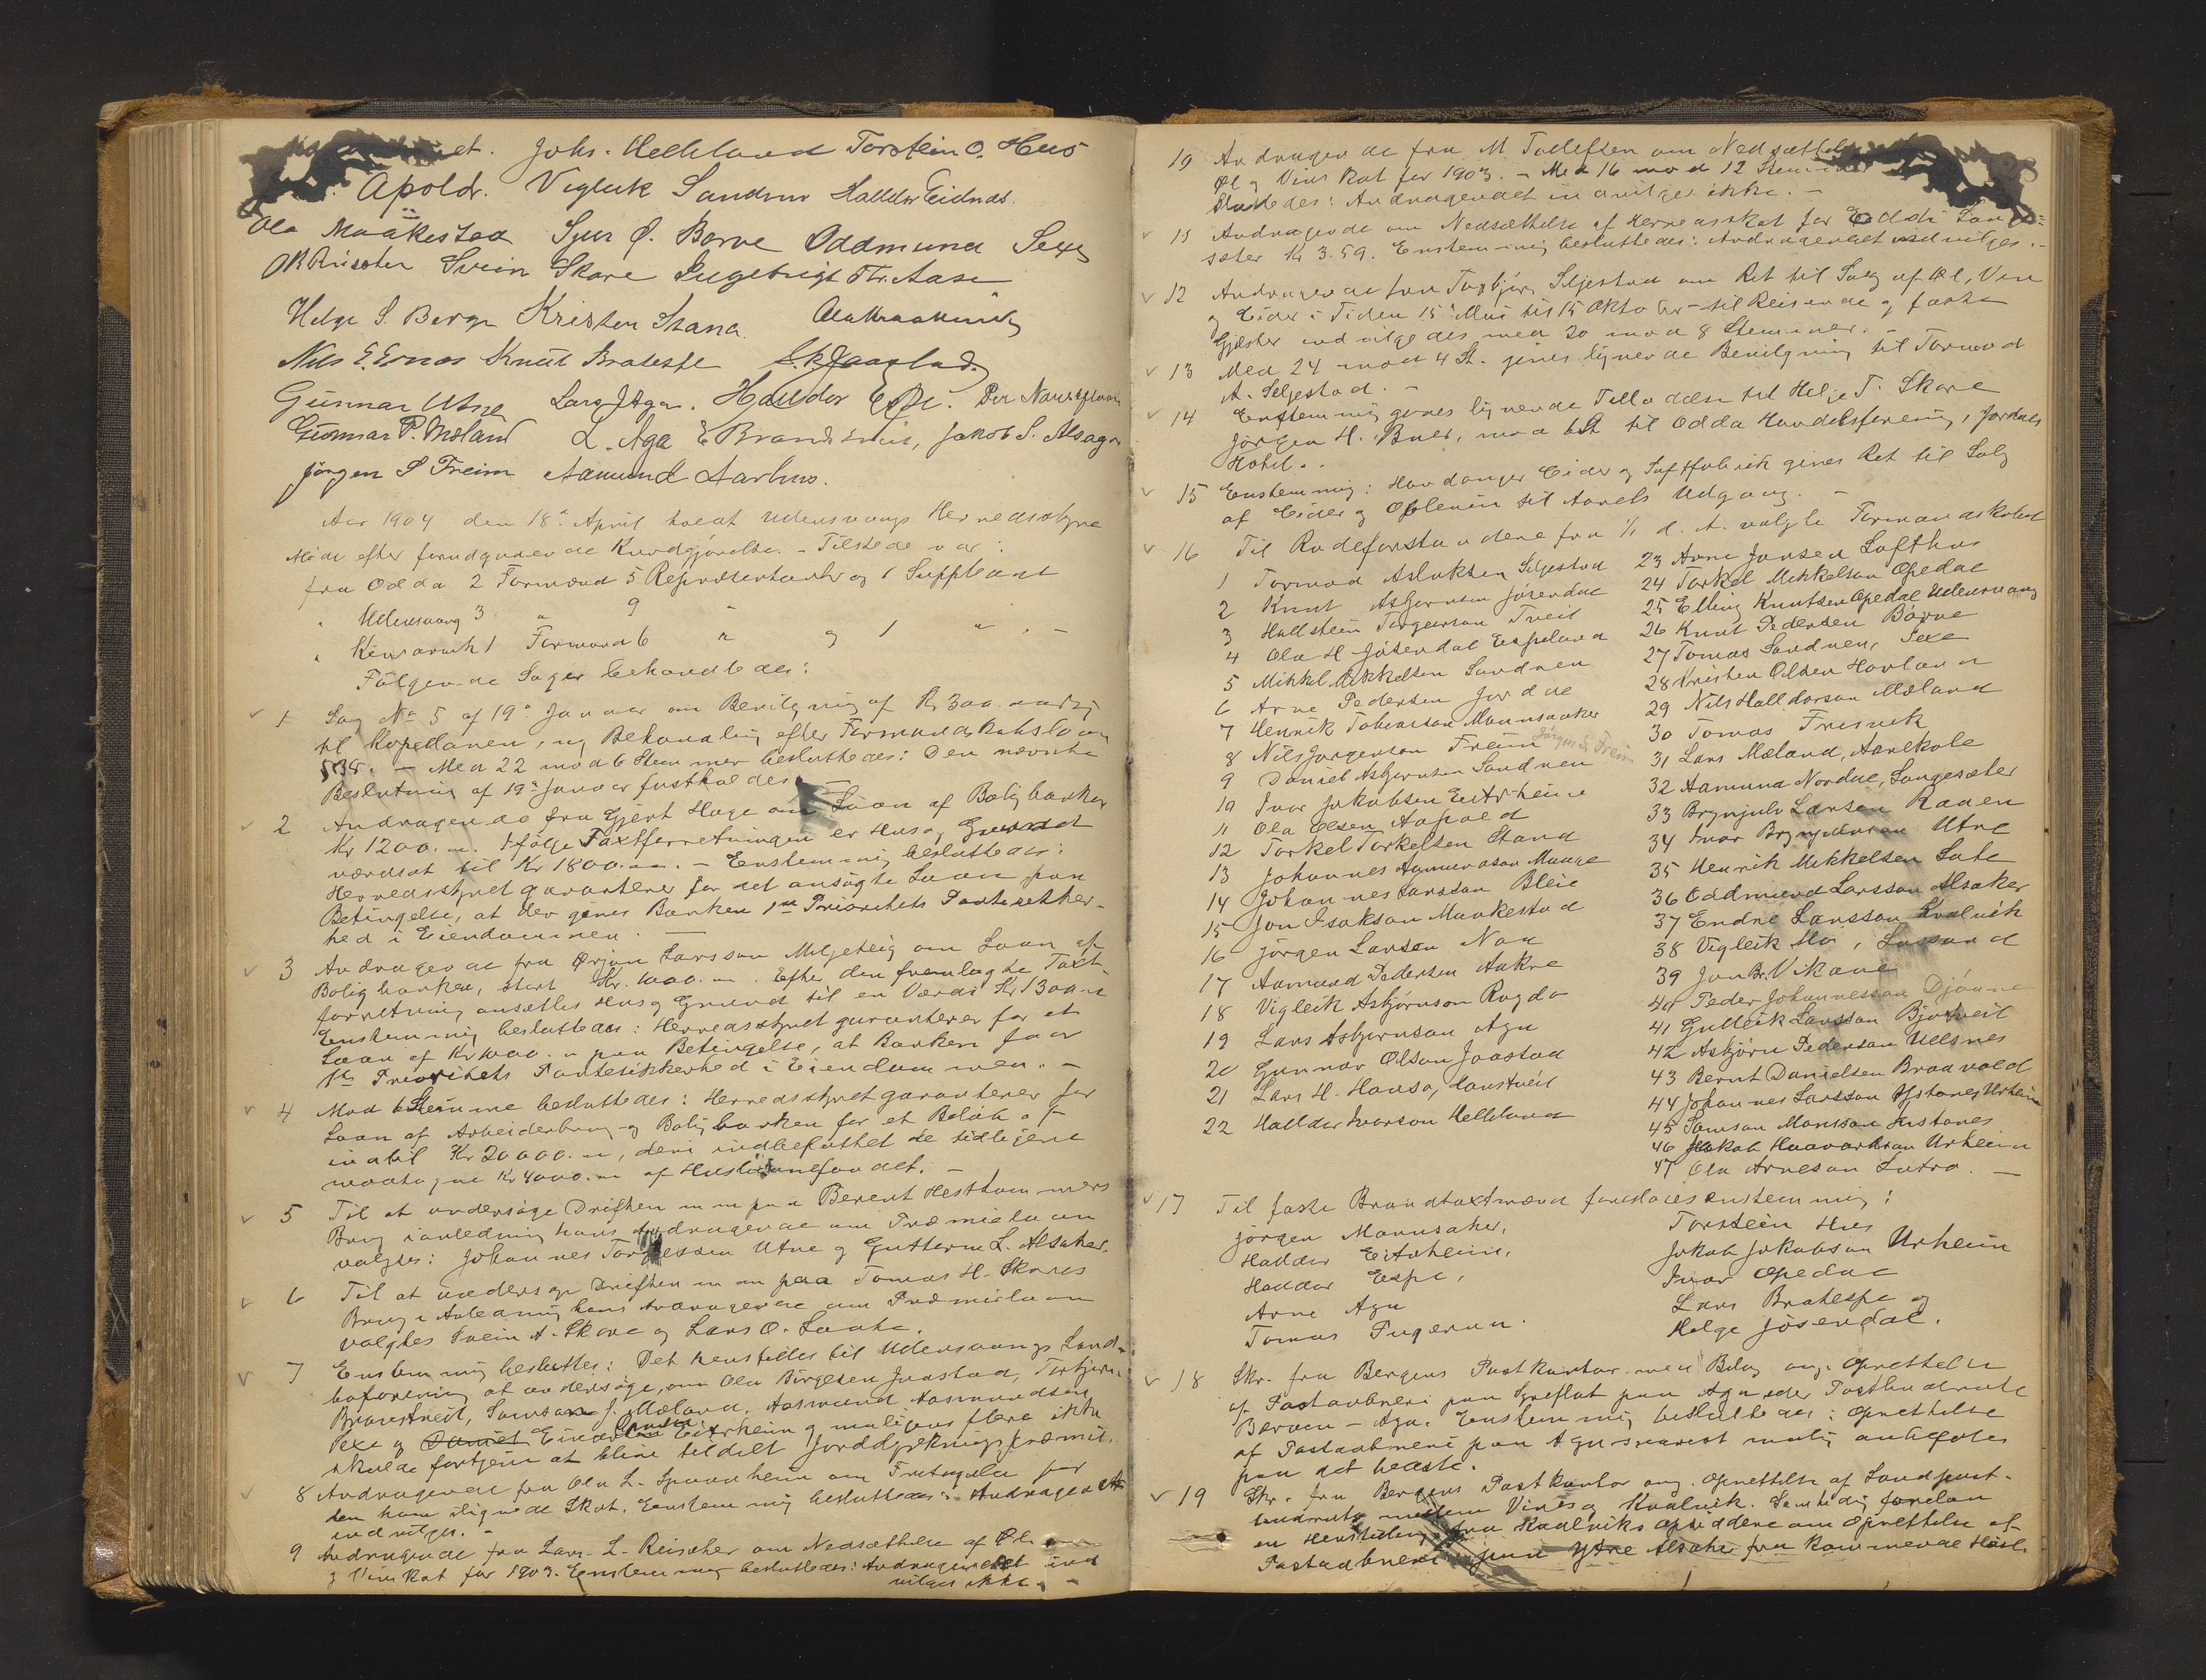 et. Johs. Helleland Torstein O. Hus
Apold. Vigleik Sandven Halldor Eidnes.
Ola Maakestad Sjur Ø. Borve Oddmund Sexe
Svein Skare Ingebrigt Th. Aase
Helge S. Berge Kristen Stana
Nils E. Ernes Knut Bratespe
Gunnar Utne Lars J Aga. Halldor Espe. Per
Gunnar P. Mæland L. Aga E Brandstveit, Jakob S. Alsager
Jørgen S Freim Aamund Aarhus.
Aar 1904 den 18de April holdt Udensvangs Herredsstyre
Møde efter forudgaaende Kundgjørelse. - Tilstede var:
fra Odda 2 Formænd 5 Repræsentanter og 1 Suppleant
" Udensvang 3 " 9 "
" Kinsarvik 1 Formand 6 " og 1 " . -
Følgende Sager behandledes:
1 Sag No 5 af 19de Januar om Bevilgning af Kr 300 aarlig
til Kapellanen, ny Behandling efter Formandskabsloven
§ 38. - Med 22 mod 6 Stemmer besluttedes: Den nævnte
Beslutning af 19de Januar fastholdes.
2 Andragende fra Gjert Hage om Laan af Boligbanken
Kr 1200.00. Ifølge Taxtforretningen er Hus og Grund
værdsat til Kr 1800.00. - Enstemmig besluttedes:
Herredsstyret garanterer for det ansøgte Laan paa
Betingelse, at der gives Banken 1ste Prioritets Pantesikker-
hed i Eiendommen. -
3 Andragende fra Ørjan Larsson Meljeteig om Laan af
Boligbanken, stort Kr. 1000.00. Efter den fremlagte Taxt-
forretning ansættes Hus og Grund til en Værdi Kr 1300.00
Enstemmig besluttedes: Herredsstyret garanterer for et
Laan af Kr 1000.00 paa Betingelse, at Banken faar
1ste Prioritets Pantesikkerhed i Eiendommen. -
4 Mod 6 Stemme besluttedes: Herredsstyret garanterer for
Laan af Arbeiderbrug og Boligbanken for et Beløb af
indtil Kr 20000.00, deri indbefattet de tidligere
modtagne Kr 4000.00 af Husmandsfondet. -
5 Til at undersøge Driften m m paa Berent Hesthammers
Brug i anledning hans Andragende om Præmielaan
valgtes: Johannes Torgilssen Utne og Guttorm L. Alsaker.
6 Til at undersøge Driften m m paa Tomas H. Skares
Brug i Anledning hans Andragende om Præmielaan
valgtes Svein A. Skare og Lars O. Laate.
7 Enstemmig besluttes: Det henstilles til Udensvangs Land-
boforening at undersøge, om Ola Birgesen Jaastad, Torbjørn
Brandstveit, Samson J. Mæland, Aasmund Aasmundsen
Sexe og Daniel Einarsen Eitrheim og muligens flere ikke
skulde fortjene at blive tildelt Jorddyrkningspræmie.
8 Andragende fra Ola L. Spaanheim om Fritagelse for
den ham ilignede Skat. Enstemmig besluttedes: Andragendet
indvilges. -
9 Andragende fra Lars L. Reisæter om Nedsættelse af Øl
og Vinskat for 1903. Enstemmig besluttedes: Andragendet ind
vilges ikke. -
10 Andragende fra M Tollefsen om Nedsættelse
Øl og Vinskat for 1903. - Med 16 mod 12 Stemmer
sluttedes: Andragendet indvilges ikke. -
11 Andragende om Nedsættelse af Herredsskat for Odda Lange-
sæter Kr 3.59. Enstemmig besluttedes: Andragendet indvilges. -
12 Andragende fra Torbjørn Seljestad om Ret til Salg af Øl, Vin
og Cider i Tiden 15de Mai til 15 Oktober til Reisende og faste
Gjæster indvilgedes med 20 mod 8 Stemmer.
13 Med 24 mod 4 St. gives lignende Bevilgning til Tormod
A. Seljestad. -
14 Enstemmig gives lignende Tilladelse til Helge T. Skare
Jørgen H. Buer, mod 6 St til Odda Handelsforening, Jordals
Hotel. .
15 Enstemmig: Hardanger Cider og Saftfabrik gives Ret til Salg
af Cider og Æblevin til Aarets Udgang. -
16 Til Rodeforstandere fra 1/1 d. A. valgte Formandskabet
1 Tormod Aslaksen Seljestad
2 Knut Asbjørnsen Jøsendal
3 Hallstein Torgeirson Tveit
4 Ola H Jøsendal Espeland
5 Mikkel Mikkelsen Sandven
6 Arne Pedersen Jordal
7 Henrik Tobiasson Mannsaaker
8 Nils Jørgenson Freim Jørgen S. Freim
9 Daniel Asbjørnsen Sandven
10 Ivar Jakobsen Eitrheim
11 Ola Olsen Aapold
12 Torkel Torkelsen Stand
13 Johannes Aamundson Mauge
14 Johannes Larsson Bleie
15 Jon Isakson Maakestad
16 Jørgen Larsen Naa
17 Aamund Pedersen Aakre
18 Vigleik Asbjørnson Rogda
19 Lars Asbjørnson Aga
20 Gunnar Olson Jaastad
21 Lars H. Hauso, Hanstveit
22 Halldor Ivarson Helleland
23 Arne Jonsen Lofthus
24 Torkel Mikkelson Opedal
25 Elling Knutsen Opedal Udensvang
26 Knut Pedersen Børve
27 Tomas Sandven, Sexe
28 Kristen Olsen Hovland
29 Nils Halldorson Mæland
30 Tomas Fresvik
31 Lars Mæland, Aarekole
32 Aamund Nordal, Langesæter
33 Brynjulv Larsen Raaen
34 Ivar Brynjulvson Utne
35 Henrik Mikkelsen Late
36 Oddmund Larsson Alsaker
37 Endre Larsson Kvalvik
38 Vigleik Mo,
39 Jon Br. Vikane
40 Peder Johannesson Djønne
41 Gulleik Larsson Bjotveit
42 Asbjørn Pederson Ulsnes
43 Bernt Danielsen Braavold
44 Johannes Larsson Ystanes Urheim
45 Samson Monsson Lustenes
46 Jakob Haavardson Urheim
47 Ola Arneson Lutro. -
17 Til faste Brandtaxtmænd foresloges enstemmig:
Jørgen Mannsaker,
Halldor Eitrheim,
Halldor Espe,
Arne Aga
Tomas Pugerun.
Torstein Hus
Jakob Jakobson Urheim
Ivar Opedal
Lars Bratespe og
Helge Jøsendal.
18 Skr. fra Bergens Postkontor med Bilag ang. Oprettelse
af Postaabneri paa Greflat paa Aga eller Postbudrute
Børven - Aga. Enstemmig besluttedes: Oprettelse
af Postaabneri paa Aga snarest mulig anbefales
paa det bedste.
19 Skr. fra Bergens Postkontor ang. Oprettelse af Landpost-
budrute mellem Vines og Kvalvik. Samtidig forelaa
en Henstilling fra Kvalviks Opsiddere om Oprettelse af
Postaabneri paa Ytre Alsaker fra kommende Høst.